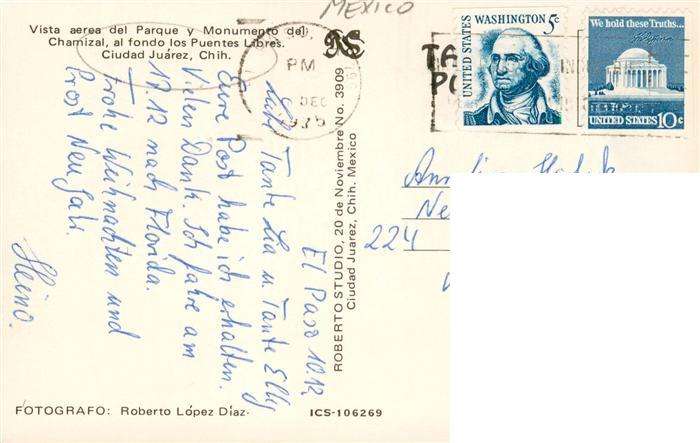 MEXICO
Vista aerea del Parque y Monumento del
Chamizal, al fondo los Puentes Libres.
Ciudad Juárez, Chih.
PM
DEC
WASHINGTON 5c
UNITED STATES
We hold these Truths...
UNITED STATES 10c
El Paso 10.12.
Liebe Tante Lia u. Tante Elly
Eure Post habe ich erhalten.
Vielen Dank. Ich fahre am
19.12 nach Florida.
Frohe Weihnachten und
Prost Neu Jahr.
Heino.
ROBERTO STUDIO, 20 de Noviembre No. 3909
Ciudad Juarez, Chih. Mexico
224
FOTOGRAFO: Roberto López Díaz
ICS-106269